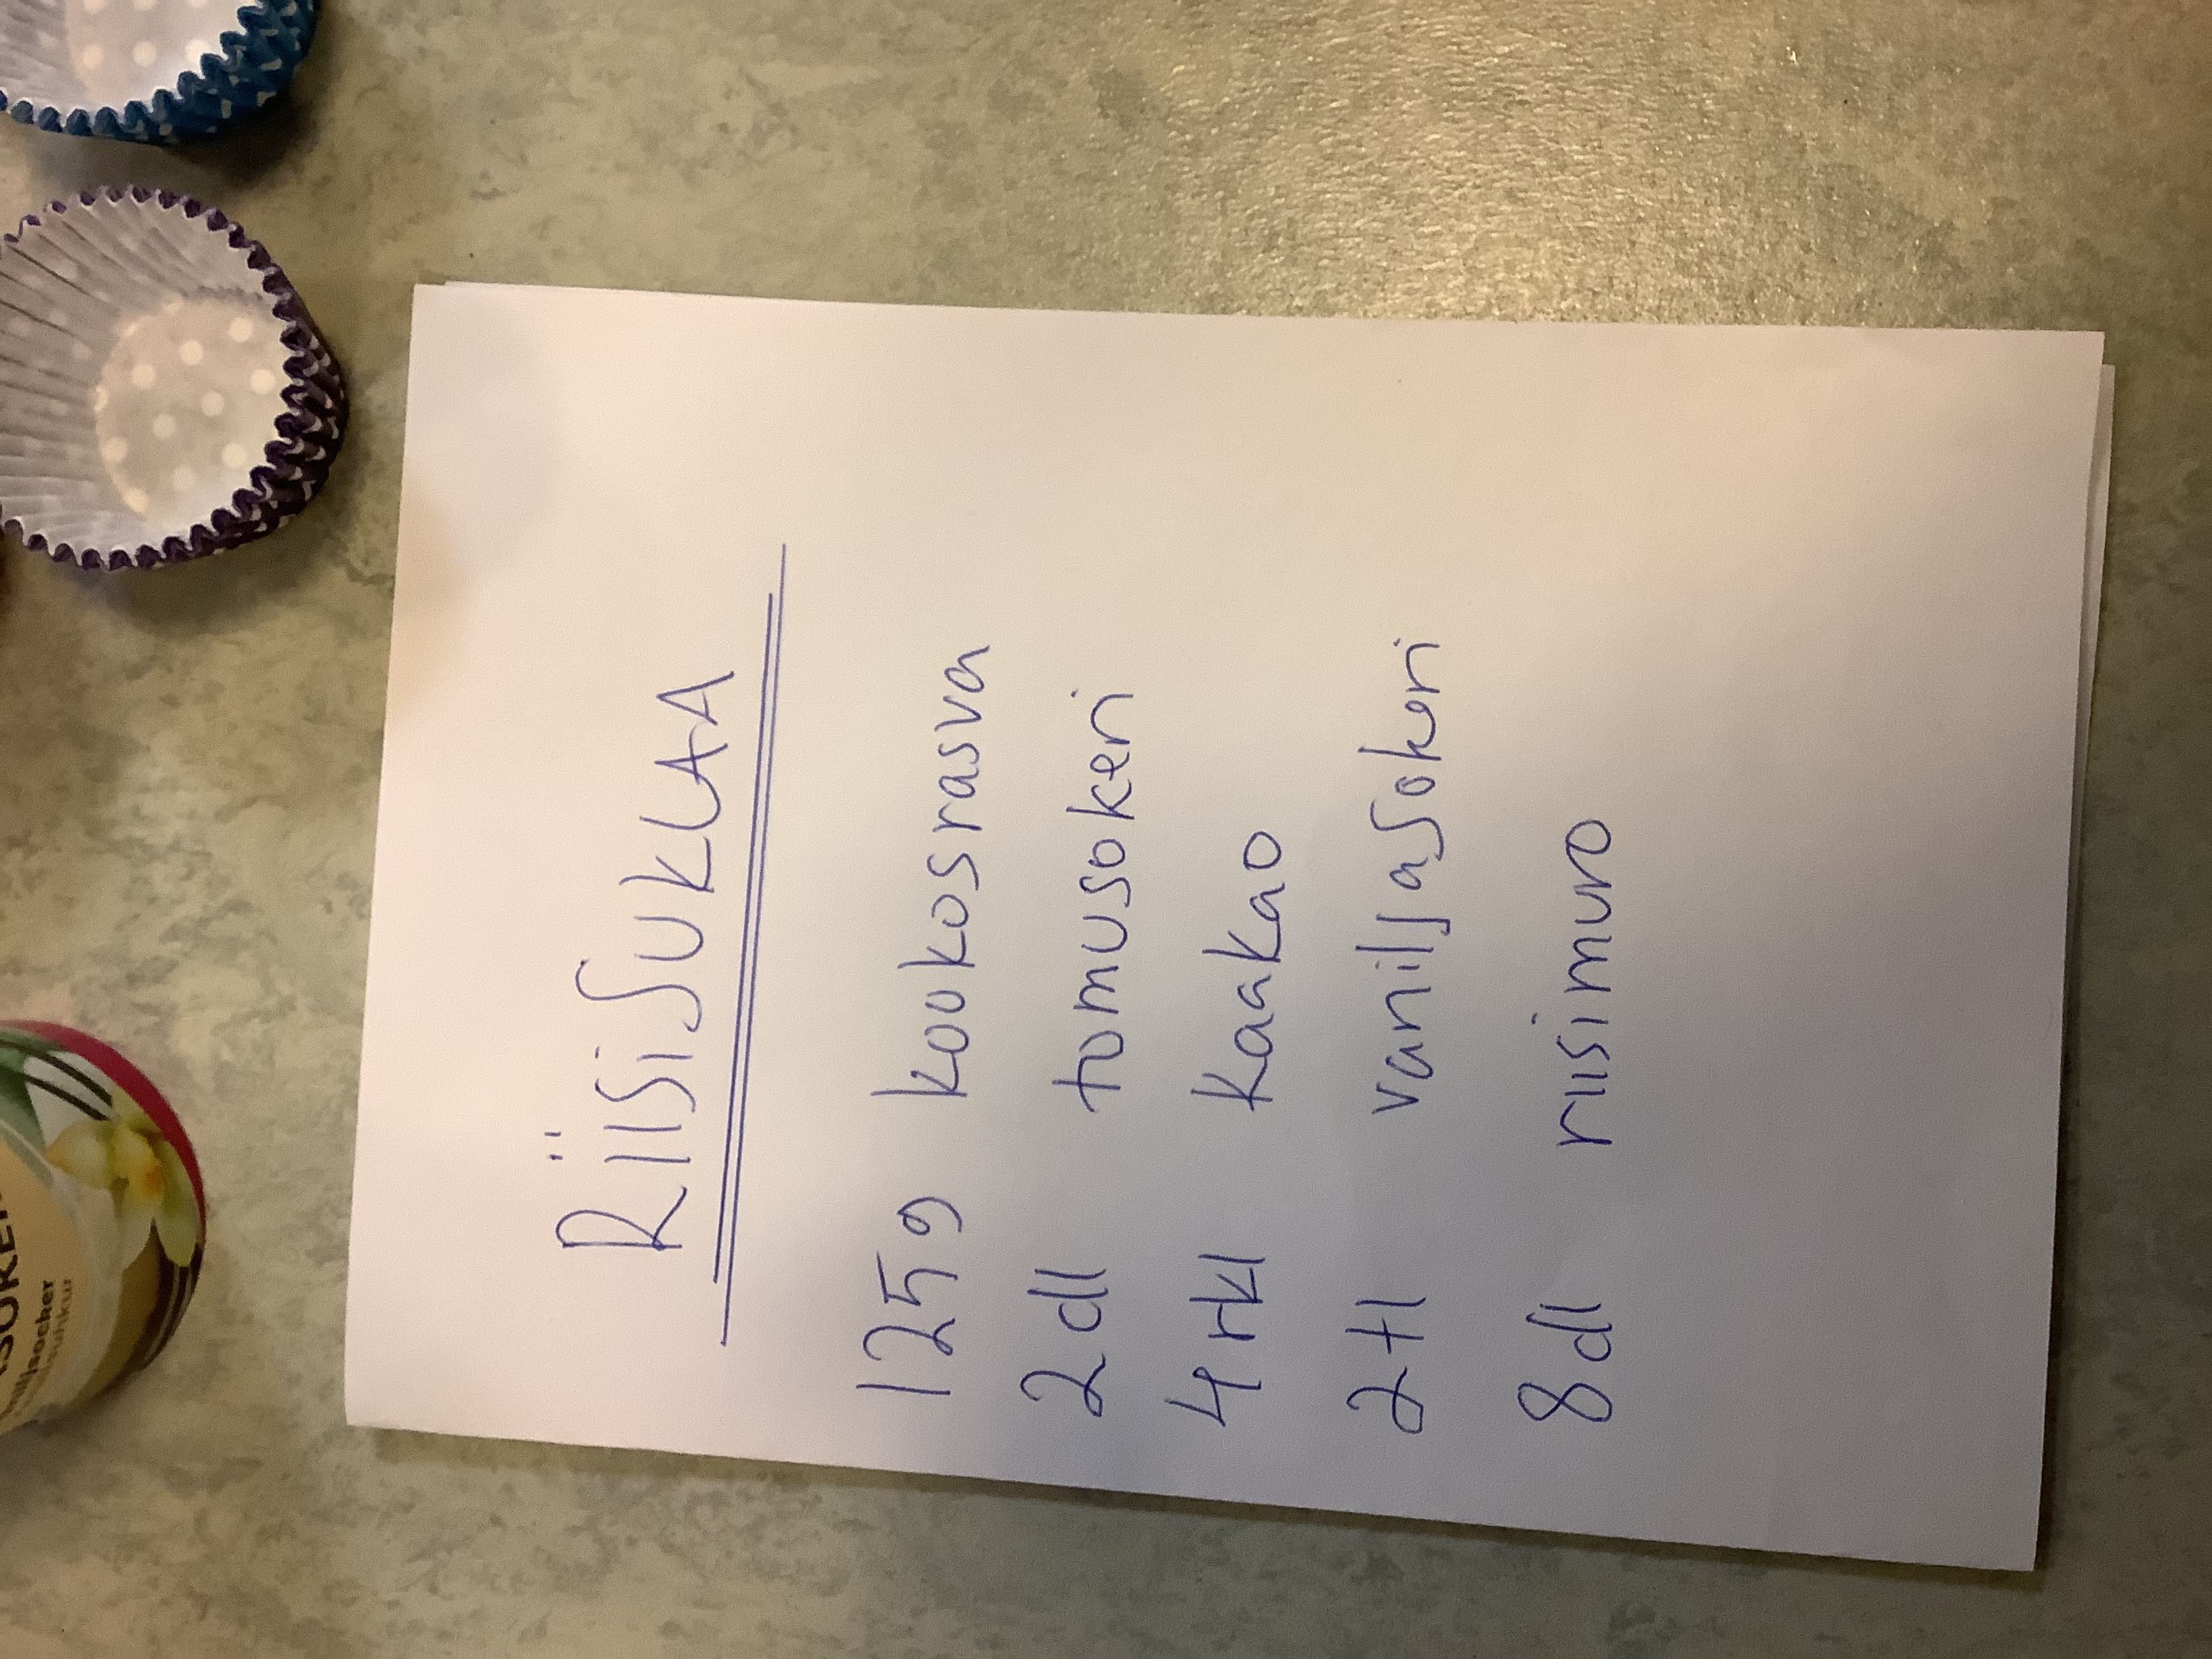 RiisiSUKLAA
125g kookosrasva
2 dl tomusokeri
4 rkl kaakao
2 tl vaniljasokeri
8 dl riisimuro